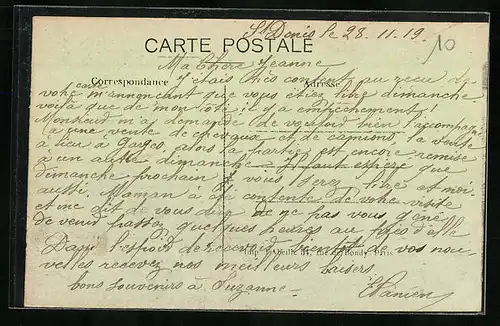 St Denis le 28.11.19.
10
CARTE POSTALE
Ma Chère Jeanne
Correspondance
Adresse
J'étais très content au reçu de
votre carte m'annonçant que vous étiez libre dimanche
voilà que de mon coté il y a empêchement!
Monsieur m'a demandé de vouloir bien l'accompagner
à une vente de chevaux et de camions, la vente
a lieu à Garges, alors la partie est encore remise
à un autre dimanche. Il faut espérer que
dimanche prochain vous serez libre et moi
aussi. Maman a été contente de votre visite
et me dit de vous dire de ne pas vous gêner
de venir passer quelques heures au près d'elle
Dans l'espoir de recevoir bientôt de vos nou-
velles recevez nos meilleurs baisers.
Imp. Abeille, rue de Bondy Paris
bons souvenirs à Suzanne